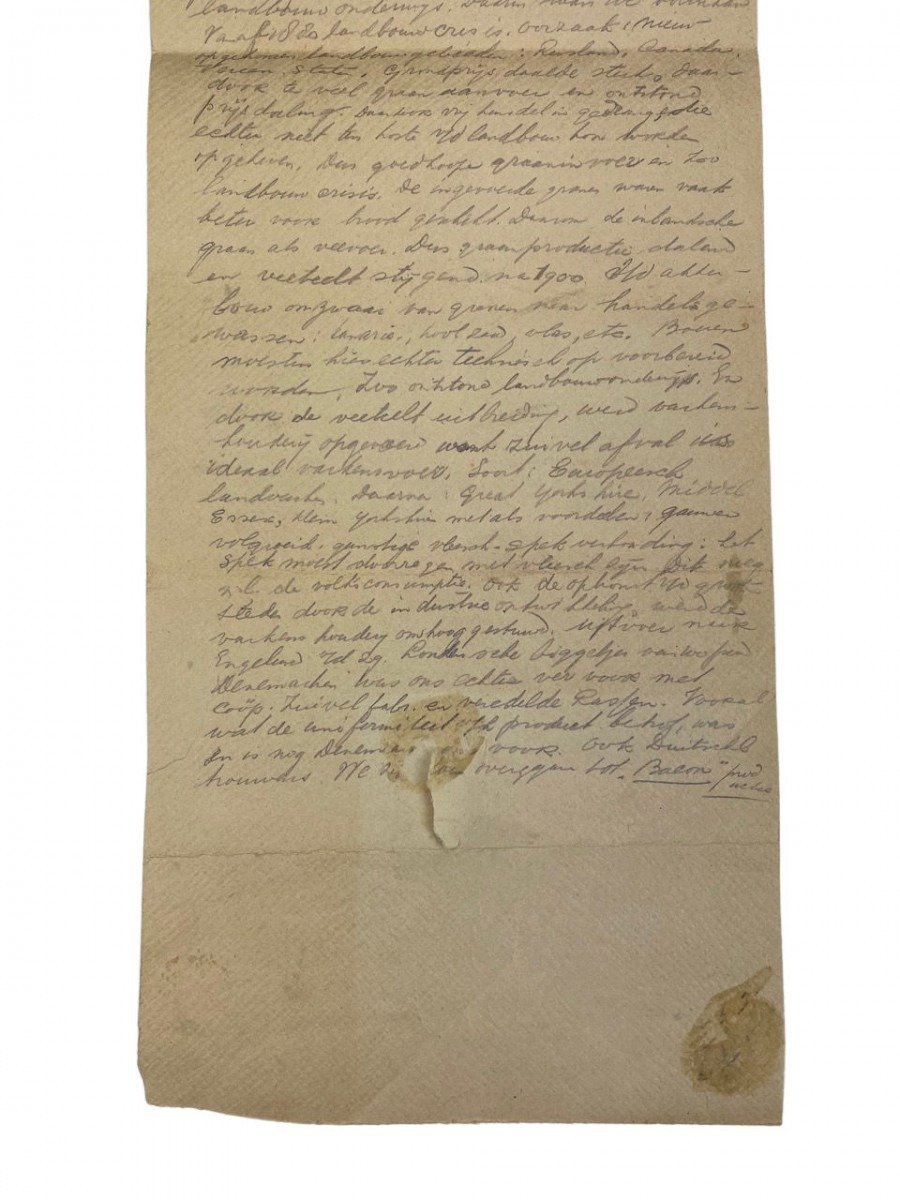 landbouw onderwijs. Daarin staan we
Vanaf 1880 landbouwcrisis. Oorzaak: nieuw
opgekomen landbouwgebieden: Rusland, Canada
Veren. Staten. Grondprijs daalde steeds. Daar-
door te veel graan aanvoer en ontstond
prijsdaling. Daardoor vrij handel in die
echter niet ten koste v/d landbouw kon worden
opgeheven. Dus goedkoope graaninvoer en zoo
landbouwcrisis. De ingevoerde granen waren vaak
beter voor brood geschikt. Daarom de inlandsche
graan als veevoer. Dus graanproductie dalend
en veeteelt stijgend na 1900. I/d akker-
bouw omzwaai van granen naar handelsge-
wassen: kanarie, koolzaad, vlas, etc. Boeren
moesten hier echter technisch op voorbereid
worden. Zoo ontstond landbouwonderwijs. En
door de veeteelt uitbreiding, werd varkens-
houderij opgevoerd want zuivel afval was
ideaal varkensvoer. Soort: Europeesch
landvarken. Daarna: Great Yorkshire, Middel
Essex, klein Yorkshire met als voordelen:
volgroeid, gunstige vleesch-spek verhouding: het
spek moest doorregen met vleesch zijn. Dit
de volksconsumptie. Ook de opkomst v/d groote
steden door de industrie ontwikkeling, werd de
varkenshouderij omhoog gestuwd. Uitvoer naar
Engeland v/d zg. Londensche biggetjes
Denemarken was ons echter ver voor met
coöp. zuivel fabr. en veredelde rassen. Vooral
wat de uniformiteit v/h product betrof, was
en is nog Denemarken voor. Ook Duitschl.
trouwens. We overgaan tot "Bacon" prod
ucties